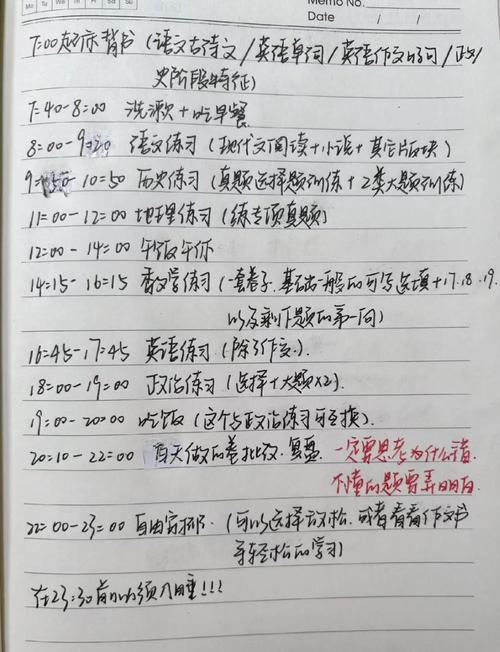 Mo Tu We Th Fr Sa Su
Memo No.
Date / /
7:00起床背书(语文古诗文/英语单词/英语作文好句/政/
史阶段特征)
7:40-8:00 洗漱+吃早餐
8:00-9:20 语文练习(现代文阅读+小说+其它版块)
9:50-10:50 历史练习(真题选择题训练+2类大题训练)
11:00-12:00 地理练习(练专项真题)
12:00-14:00 午饭午休
14:15-16:15 数学练习(一套卷子.基础一般的可写选填+17.18.19.
以及剩下题的第一问)
16:45-17:45 英语练习(除了作文).
18:00-19:00 政治练习(选择+大题×2).
19:00-20:00 吃饭(这个与政治练习可互换).
20:10-22:00 白天做的卷批改.复盘.一定要思考为什么错.
不懂的题要弄明白
22:00-23:00 自由安排.(可以选择放松.或者看看作文书
等轻松的学习)
在23:30前必须入睡!!!